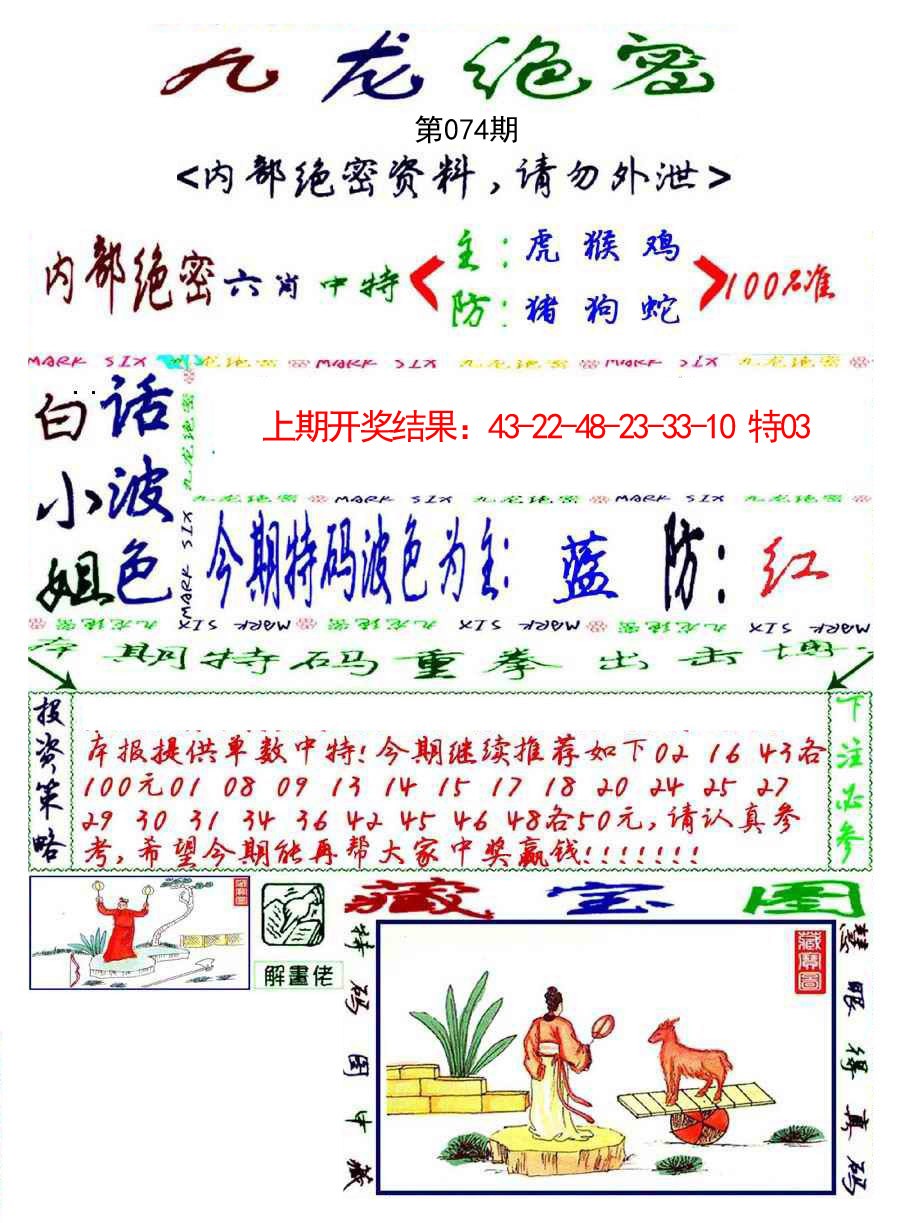 九龙绝密
第074期
<内部绝密资料,请勿外泄>
内部绝密六肖中特
主:虎 猴 鸡
防:猪 狗 蛇
100%准
MARK SIX 九龙绝密 MARK SIX 九龙绝密 MARK SIX 九龙绝密
白话
小波
姐色
九龙绝密
MARK SIX
上期开奖结果：43-22-48-23-33-10 特03
九龙绝密 MARK SIX 九龙绝密 MARK SIX 九龙绝密
今期特码波色为主: 蓝 防: 红
九龙绝密 MARK SIX 九龙绝密 MARK SIX 九龙绝密 MARK SIX
本期特码重拳出击
投资策略
本报提供单数中特!今期继续推荐如下02 16 43各
100元01 08 09 13 14 15 17 18 20 24 25 27
29 30 31 34 36 42 45 46 48各50元,请认真参
考,希望今期能再帮大家中奖赢钱!!!!!!!
下注必参
藏宝图
解畫佬
特码图中藏
藏寶圖
慧眼得真码